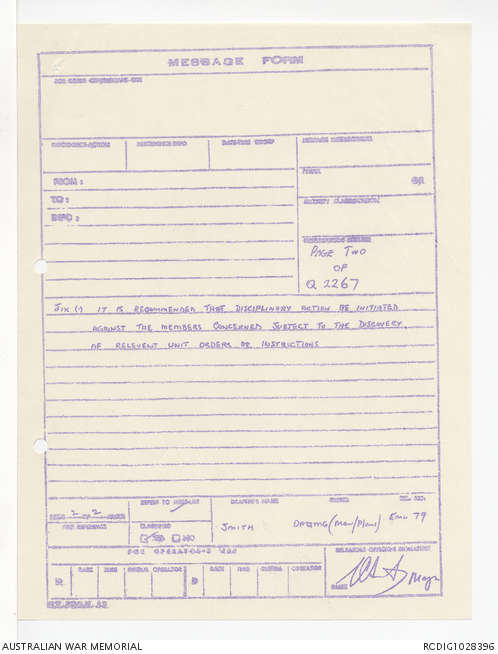 MESSAGE FORM
PRECEDENCE-ACTION
PRECEDENCE-INFO
DATE-TIME GROUP
MESSAGE INSTRUCTIONS
FROM :
PREFIX
GR
TO :
SECURITY CLASSIFICATION
INFO :
ORIGINATORS NUMBER
PAGE TWO
OF
Q 2267
SIX (.) IT IS RECOMMENDED THAT DISCIPLINARY ACTION BE INITIATED
AGAINST THE MEMBERS CONCERNED SUBJECT TO THE DISCOVERY
OF RELEVENT UNIT ORDERS OR INSTRUCTIONS
PAGE 2 OF 2 PAGES
REFERS TO MESSAGE
DRAFTER'S NAME
OFFICE
TEL. NO.
FILE REFERENCE
CLASSIFIED
YES
NO
SMITH
EMU 79
FOR OPERATORS USE
RELEASING OFFICERS SIGNATURE
R
DATE
TIME
SYSTEM
OPERATOR
D
DATE
TIME
SYSTEM
OPERATOR
Major
RANK
AUSTRALIAN WAR MEMORIAL
RCDIG1028396